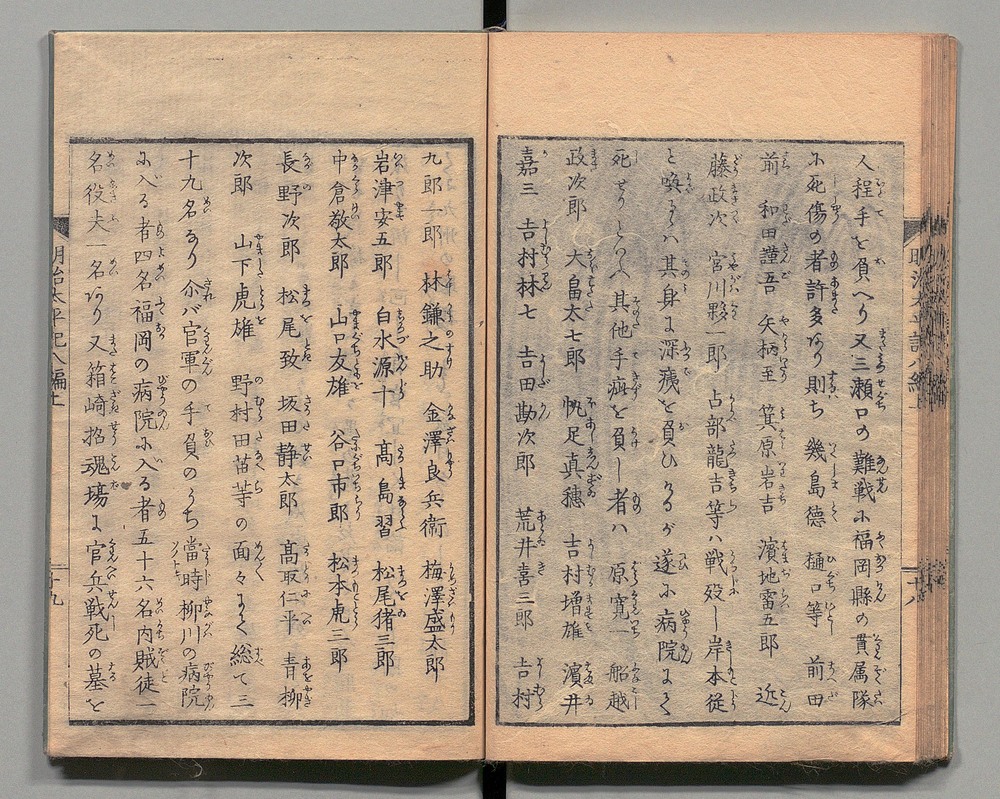 人程手を負へり又三瀬口の難戦に福岡縣の貫属隊
に死傷の者許多あり則ち 幾島德 樋口等 前田
前 和田謹吾 矢柄至 箕原岩吉 濱地富五郎 近
藤政次 宮川夥一郎 占部龍吉等ハ戦歿し岸本従
と喚るハ其身に深痍を負ひけるが遂に病院にて
死せりといへ其他手疵を負し者ハ 原寛一 船越
政次郎 大畠太七郎 帆足真穗 吉村増雄 濵井
嘉三 吉村林七 吉田勘次郎 荒井喜三郎 吉村
九郎一郎 林鎌之助 金澤良兵衛 梅澤盛太郎
岩津安五郎 白水源十 髙島習 松尾猪三郎
中倉敬太郎 山口友雄 谷口市郎 松本虎三郎
長野次郎 松尾致 坂田静太郎 髙取仁平 青柳
次郎 山下虎雄 野村田苗等の面々にて総て三
十九名なり尓バ官軍の手負のうち當時柳川の病院
に入る者四名福岡の病院に入る者五十六名内賊徒一
名役夫一名あり又箱崎招魂塲に官兵戦死の墓を
明治太平記八編上
十九